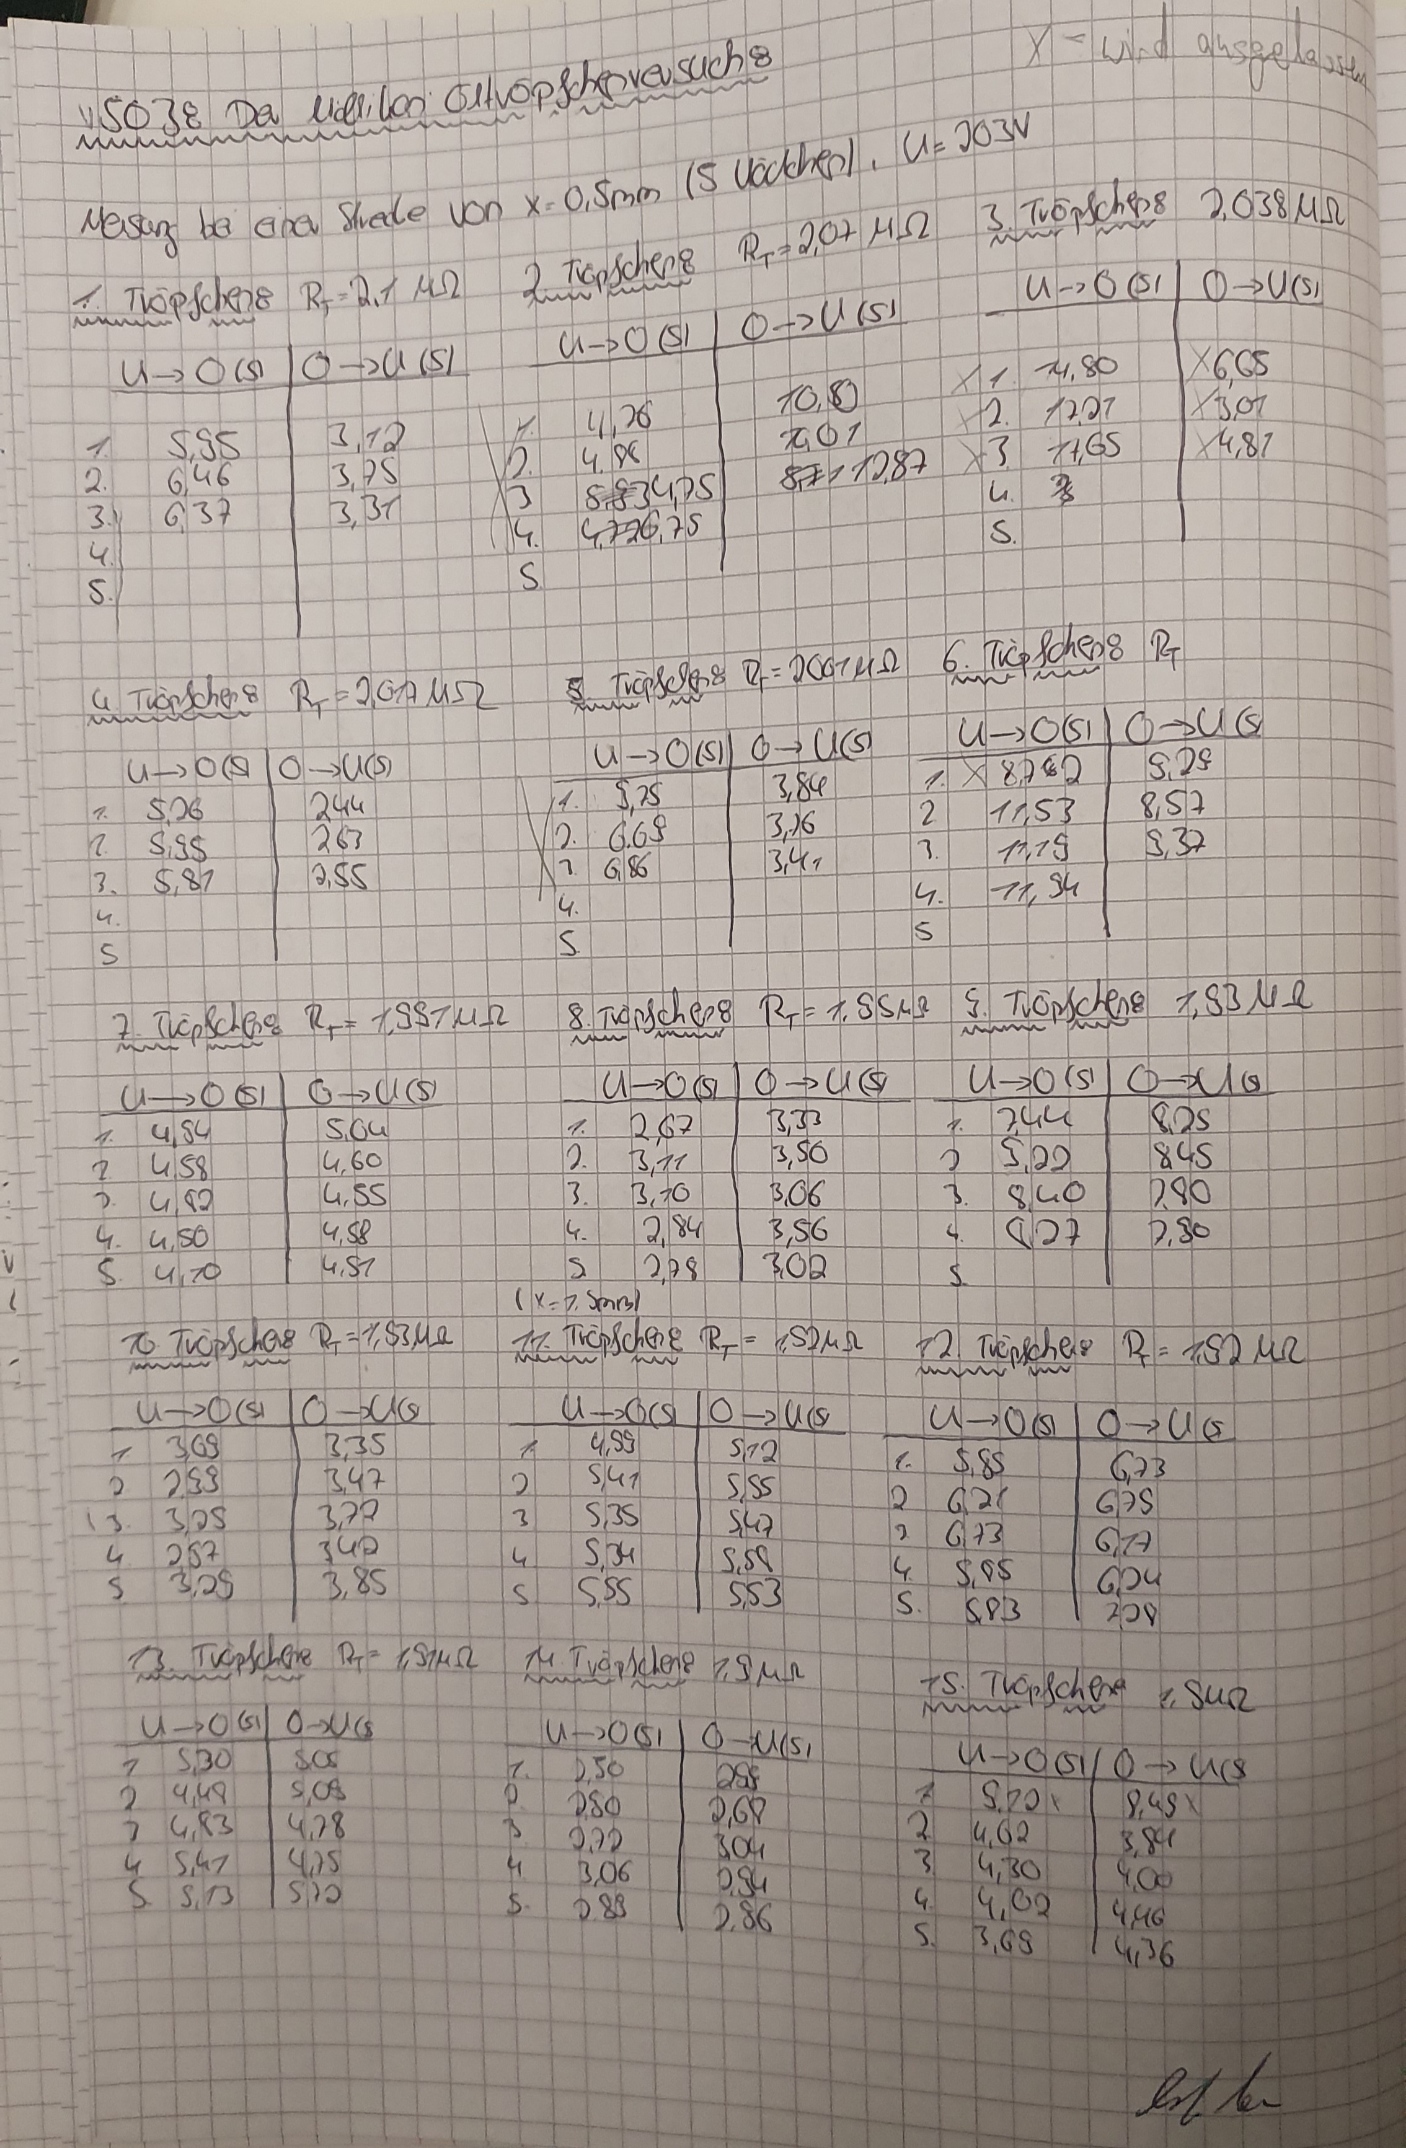 X = wird ausgelassen
V503: Der Millikan Öltröpfchenversuch:
Messung bei einer Strecke von x=0,5mm (5 Kästchen), U=203V
1. Tröpfchen: R_T=2,1 MΩ
U→O(s) O→U(s)
1. 5,95 3,12
2. 6,46 3,75
3. 6,37 3,31
4.
5.
2. Tröpfchen: R_T=2,07 MΩ
U→O(s) O→U(s)
1. 4,76 10,8
2. 4,96
3 4,75 12,87
4. 6,75
5
3. Tröpfchen: 2,038 MΩ
U→O(s) O→U(s)
X 1. 14,80 X 6,65
X 2. X 3,01
X 3. 11,65 X 4,81
4.
5.
4. Tröpfchen: R_T=2,017 MΩ
U→O(s) O→U(s)
1. 5,26 2,44
2. 5,95 2,63
3. 5,81 2,55
4.
5
5. Tröpfchen: R_T=2,001 MΩ
U→O(s) O→U(s)
1. 5,75 3,84
2. 6,69 3,26
3. 6,86 3,41
4.
5
6. Tröpfchen: R_T
U→O(s) O→U(s)
1. X 9,29
2 11,53 8,57
3. 11,19 9,37
4. 11,94
5
7. Tröpfchen: R_T=1,991 MΩ
U→O(s) O→U(s)
1. 4,94 5,04
2. 4,58 4,60
3. 4,92 4,55
4. 4,50 4,58
5. 4,70 4,51
8. Tröpfchen: R_T=1,95 MΩ
U→O(s) O→U(s)
1. 2,67 3,33
2. 3,11 3,50
3. 3,10 3,06
4. 2,84 3,56
5 2,78 3,02
9. Tröpfchen: 1,93 MΩ
U→O(s) O→U(s)
1. 7,44 8,25
2 9,22 8,45
3. 8,40 7,80
4. 8,27 7,90
5
10. Tröpfchen: R_T=1,93 MΩ
U→O(s) O→U(s)
1. 3,69 3,35
2 2,99 3,47
3. 3,25 3,72
4 2,97 3,42
5 3,29 3,85
(x=1,5mm)
11. Tröpfchen: R_T=1,92 MΩ
U→O(s) O→U(s)
1. 4,99 5,12
2 5,41 5,55
3 5,35 5,47
4 5,34 5,58
5 5,55 5,53
12. Tröpfchen: R_T=1,92 MΩ
U→O(s) O→U(s)
1. 5,85 6,73
2 6,21 6,75
3 6,73 6,17
4. 5,95 6,24
5. 5,83 7,28
13. Tröpfchen: R_T=1,91 MΩ
U→O(s) O→U(s)
1 5,30 5,05
2 4,49 5,09
3 4,83 4,78
4 5,41 4,75
5. 5,13 5,20
14. Tröpfchen: 1,9 MΩ
U→O(s) O→U(s)
1. 2,50 2,95
2 2,80 2,68
3 2,72 3,04
4 3,06 2,94
5. 2,89 2,86
15. Tröpfchen 1,9 MΩ
U→O(s) O→U(s)
1 9,20 x 8,49 x
2 4,02 3,84
3 4,30 4,00
4. 4,02 4,46
5. 3,69 4,36